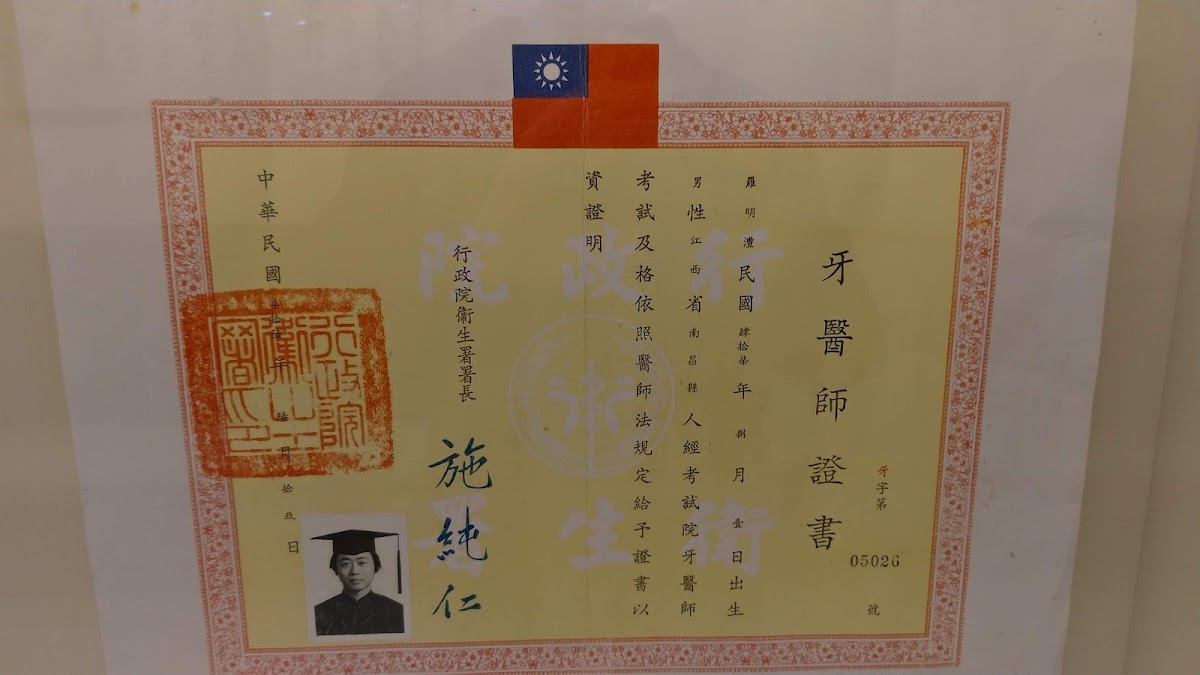 牙醫師證書
牙字第
05026
號
羅明澧民國肆拾柒年捌月壹日出生
男性江西省南昌縣人經考試院牙醫師
考試及格依照醫師法規定給予證書以
資證明
行政院衞生署署長
施純仁
中華民國柒拾年陸月拾玖日
行政院
衛生署
衛
行政院衛生署印